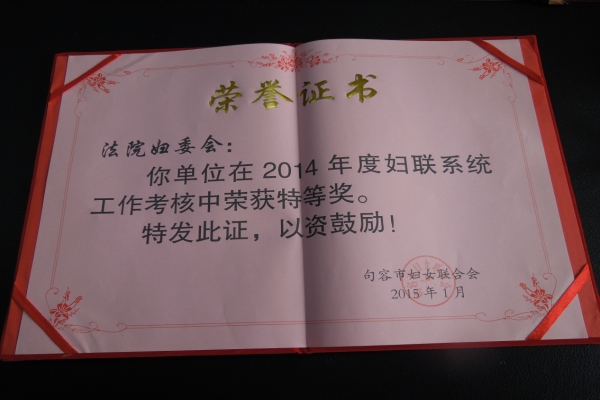 荣誉证书
法院妇委会：
你单位在2014年度妇联系统
工作考核中荣获特等奖。
特发此证，以资鼓励！
句容市妇女联合会
2015年1月